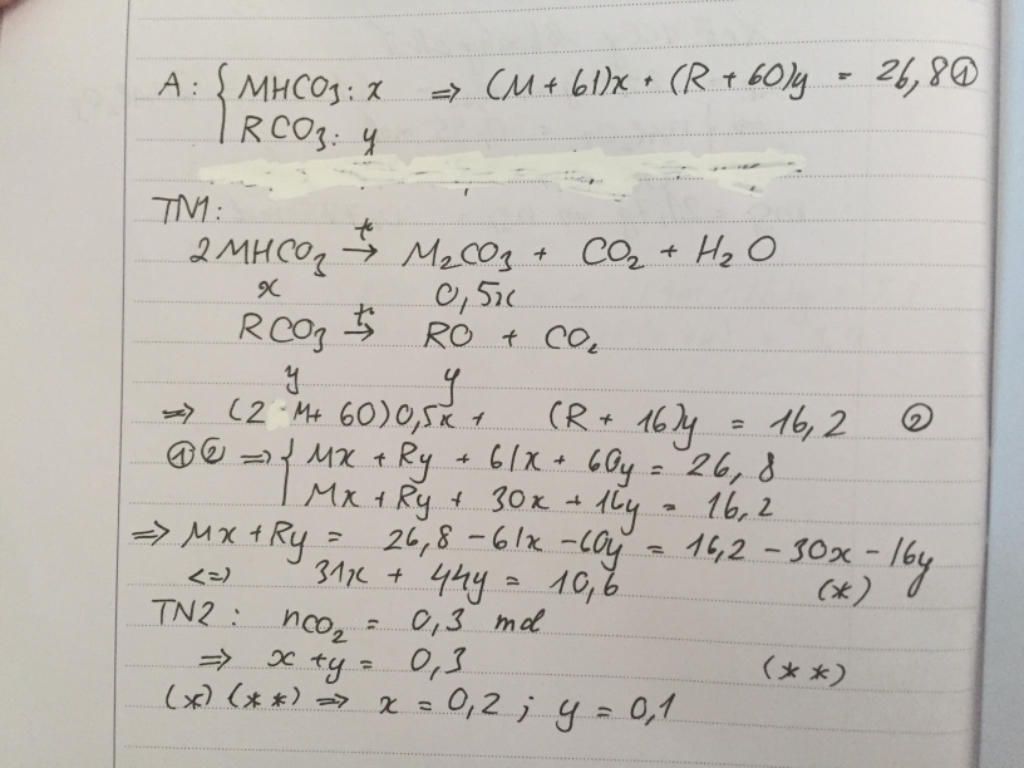 A: { MHCO3: x => (M + 61)x + (R + 60)y = 26,8 ①
RCO3: y
TN1:
2MHCO3 t°→ M2CO3 + CO2 + H2O
x 0,5x
RCO3 t°→ RO + CO2
y y
=> (2 M + 60)0,5x + (R + 16)y = 16,2 ②
①② => { Mx + Ry + 61x + 60y = 26,8
Mx + Ry + 30x + 16y = 16,2
=> Mx + Ry = 26,8 - 61x - 60y = 16,2 - 30x - 16y
<=> 31x + 44y = 10,6 (*)
TN2: nCO2 = 0,3 mol
=> x + y = 0,3 (**)
(*) (**) => x = 0,2 ; y = 0,1